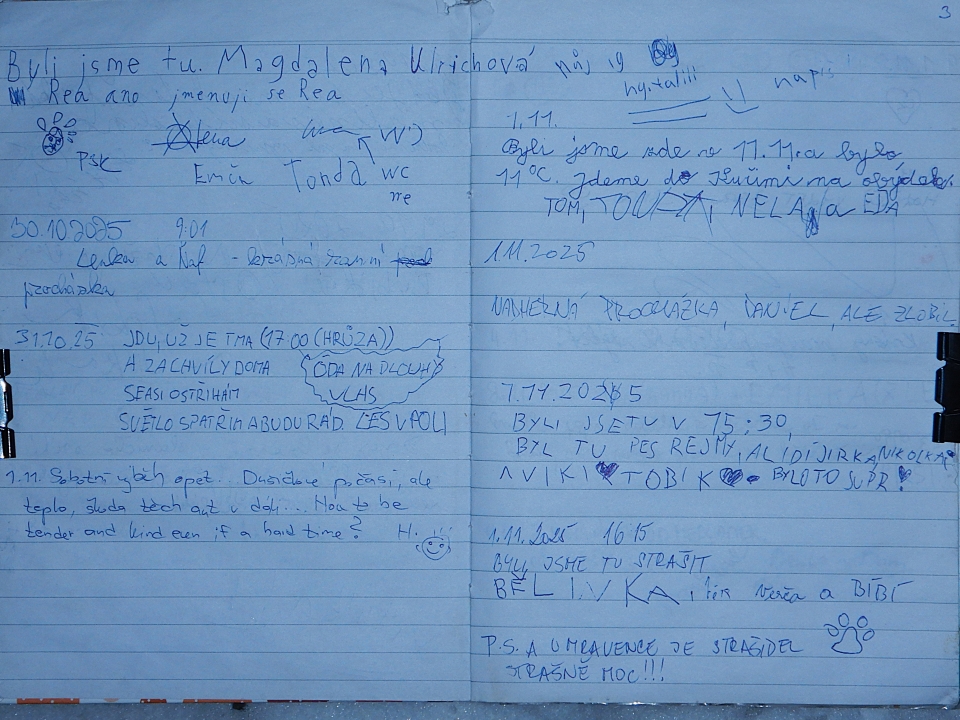 3
Byli jsme tu. Magdalena Ulrichová můj ig
Rea ano jmenuji se Rea
napiš
Psk
Emin Tonda wc
ne
30.10 2025 9:01
Lenka a Raf - krásná ranní
procházka
31.10.25 JDU, UŽ JE TMA (17:00 (HRŮZA))
A ZA CHVÍLY DOMA
SEASI OSTŘIHÁM
SVĚTLO SPATŘÍM A BUDU RÁD. LES V POLI
ÓDA NA DLOUHÝ
VLAS
1.11. Sobotní výběh opět.. Dušičkové počasí, ale
teplo, škoda těch aut v dáli... How to be
tender and kind even if a hard time?
H.
1.11.
Byli jsme zde na 11.11. a bylo
11°C. Jdeme do na
TOM, TONDA, NELA, a EDA
1.11.2025
NÁDHERNÁ PROCHÁZKA, DANIEL, ALE ZLOBIL
1.11.2025
BYLI JSETU V 15:30,
BYL TU PES REJMY, ALIDIJIRKA, NIKOLKA
A VIKI TOBIK BYLO TO SUPR!
1.11.2025 16 15
BYLI JSME TU STRAŠIT
BĚL I.V KA, Verča a BÍBÍ
P.S. A U MRAVENCE JE STRAŠIDEL
STRAŠNĚ MOC!!!